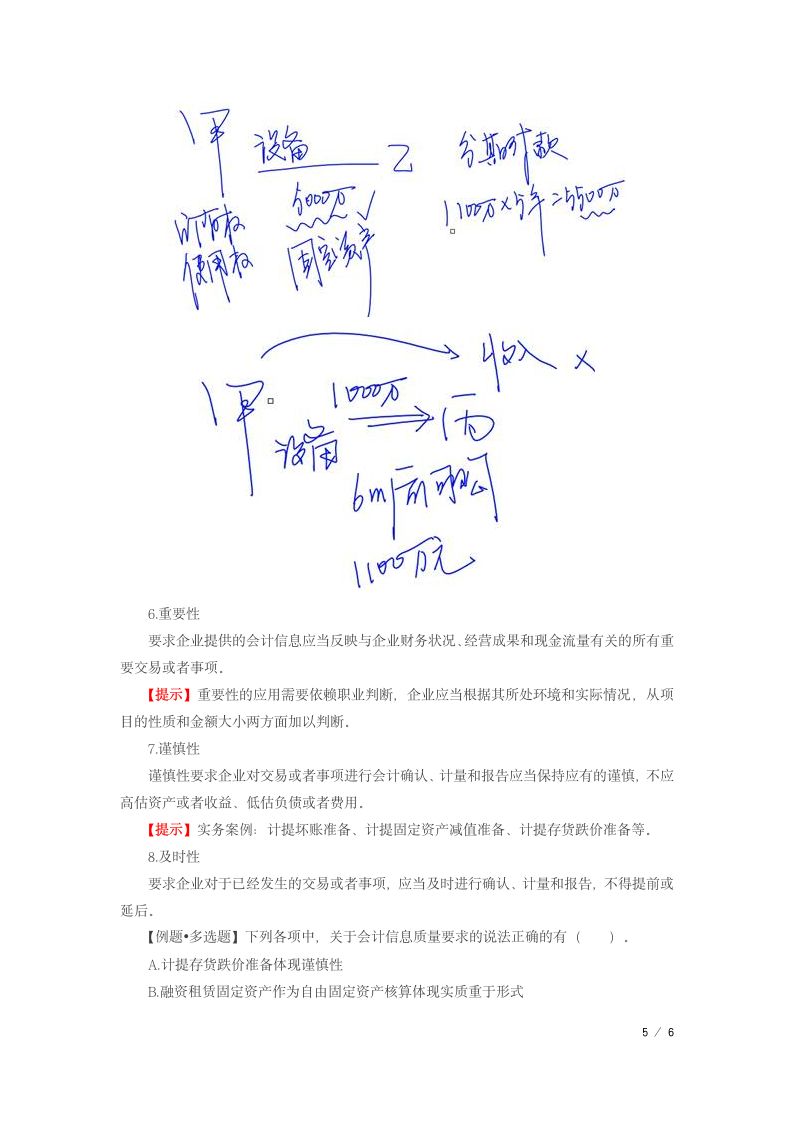 甲 设备 乙 分期付款
5000万 1100万×5年=5500万
所有权
使用权 固定资产
收入 ×
甲 1000万 丙
设备
6m后回购
1100万元
6.重要性
要求企业提供的会计信息应当反映与企业财务状况、经营成果和现金流量有关的所有重
要交易或者事项。
【提示】重要性的应用需要依赖职业判断，企业应当根据其所处环境和实际情况，从项
目的性质和金额大小两方面加以判断。
7.谨慎性
谨慎性要求企业对交易或者事项进行会计确认、计量和报告应当保持应有的谨慎，不应
高估资产或者收益、低估负债或者费用。
【提示】实务案例：计提坏账准备、计提固定资产减值准备、计提存货跌价准备等。
8.及时性
要求企业对于已经发生的交易或者事项，应当及时进行确认、计量和报告，不得提前或
延后。
【例题•多选题】下列各项中，关于会计信息质量要求的说法正确的有（　　）。
A.计提存货跌价准备体现谨慎性
B.融资租赁固定资产作为自由固定资产核算体现实质重于形式
5 / 6